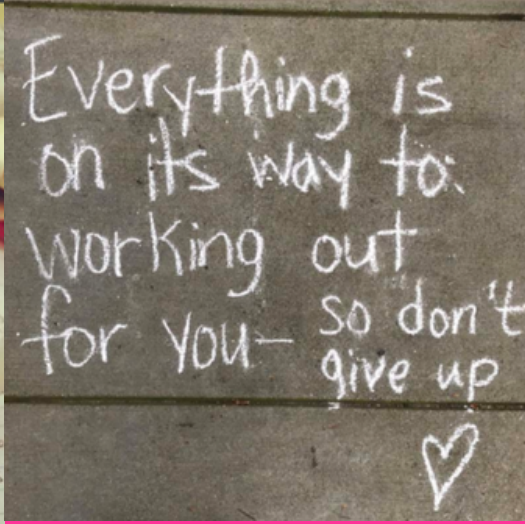 Everything is
on its way to:
working out
for you— so don't
give up
♡